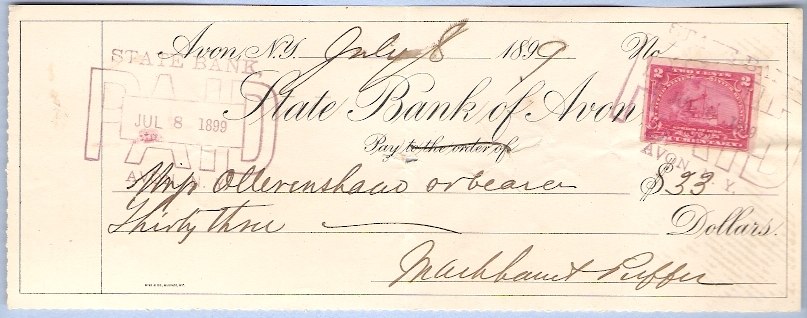 Avon, N.Y. July 8 1899 No.
STATE BANK
PAID
JUL 8 1899
AVON, N.Y.
State Bank of Avon
2 TWO CENTS 2
DOCUMENTARY
PAID
AVON Y.
Pay to the order of
Ollerenshaw or bearer $33
Thirty three Dollars.
Puffer